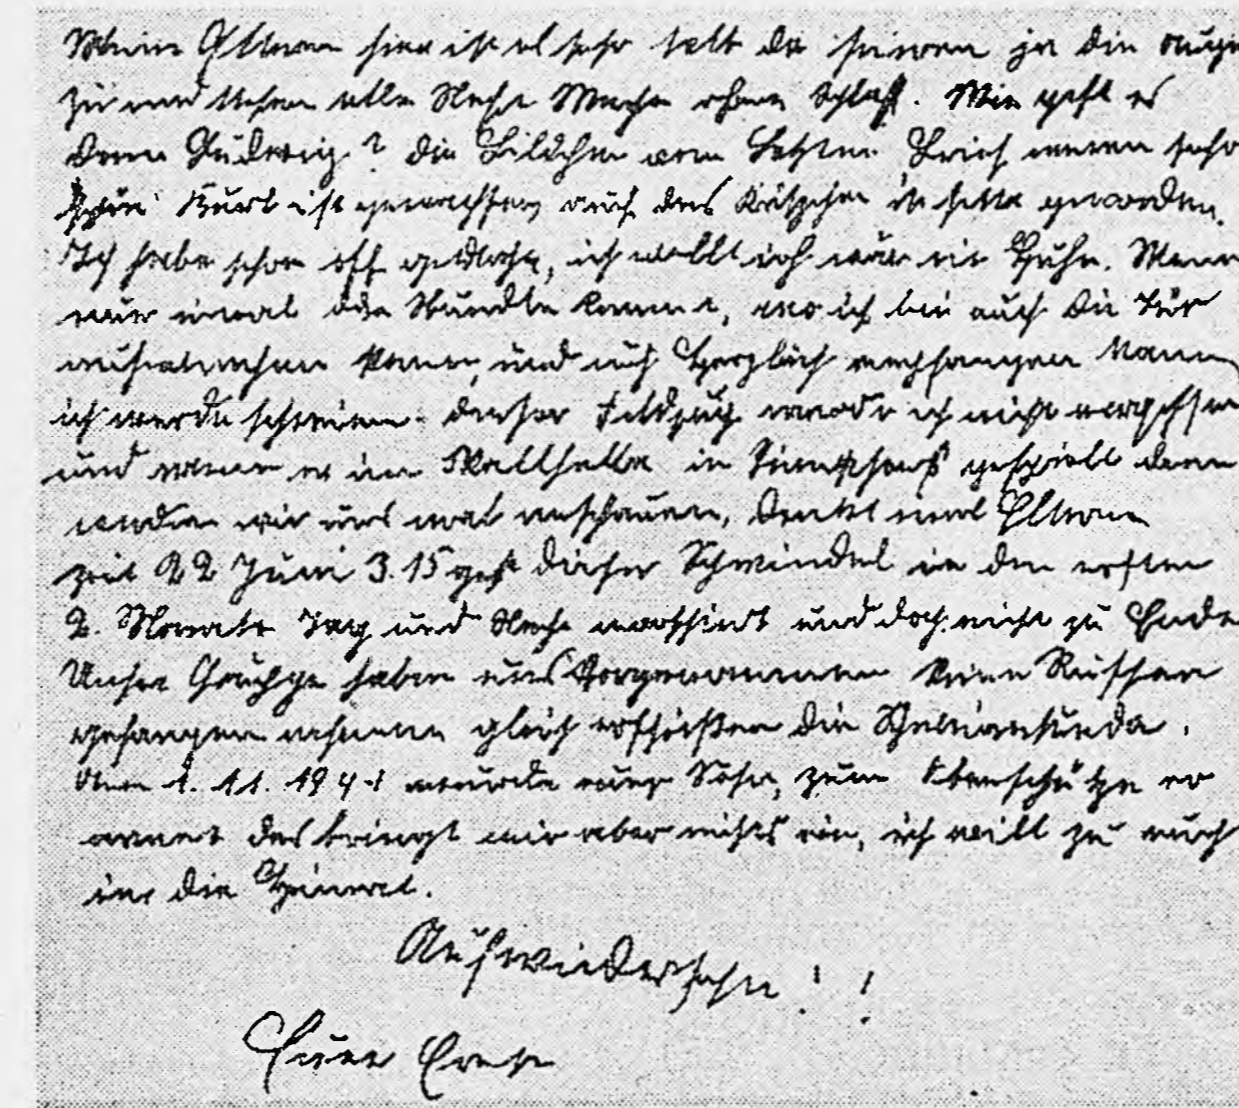 Meine Eltern hier ist es sehr kalt da frieren ja die Auge
zu und stehen alle Nacht Wache ohne Schlaf. Wie geht es
denn Ludwig? die Bildchen vom Letzten Brief waren sehr
schön Kurt ist gewachsen auch das Kätzchen ist fett geworden.
Ich habe schon oft gedacht, ich wollt ich wär ein Huhn. Wenn
nur einmal die Stunde kommt, wo ich bei euch die Tür
aufmachen kann, und euch Herzlich empfangen kann
ich werde schreien. dieser Feldzug werde ich nicht vergessen
und wenn er im Walthalla in gespielt dann
werden wir uns mal anschauen, denkt mal Eltern
zeit 22 Juni 3.15 geht dieser Schwindel in den ersten
2. Monate Tag und Nacht marschiert und doch nicht zu Ende
Unser haben uns Vorgenommen keine Russen
gefangen nehmen gleich erschießen die
Am 1. 11. 1941 wurde euer Sohn, zum Oberschütze er
nannt das bringt mir aber nichts ein, ich will zu euch
in die Heimat.
Aufwiedersehn! !
Euer Ernst